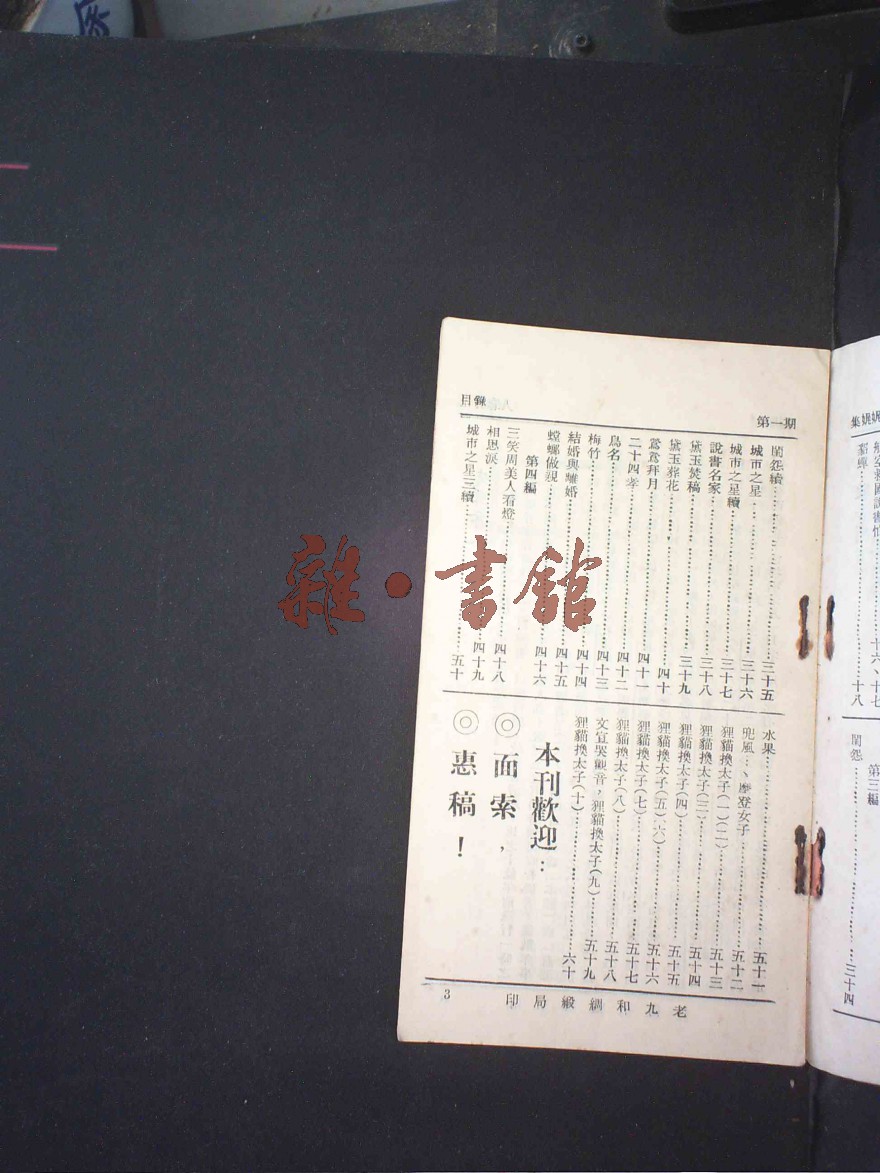 第一期
目錄
閨怨續三十五
城市之星三十六
城市之星續三十七
說書名家三十八
黛玉焚稿三十九
黛玉葬花四十
鴛鴦拜月四十一
二十四孝四十二
鳥名四十三
梅竹四十四
結婚與離婚四十五
螳螂做親四十六
第四編
三笑周美人看燈四十八
相思淚四十九
城市之星三續五十
水果五十一
兜風、摩登女子五十二
狸貓換太子(一)(二)五十三
狸貓換太子(三)五十四
狸貓換太子(四)五十五
狸貓換太子(五)(六)五十六
狸貓換太子(七)五十七
狸貓換太子(八)五十八
文宣哭觀音，狸貓換太子(九)五十九
狸貓換太子(十)六十
本刊歡迎：
◎面索，
◎惠稿！
老九和綢緞局印
3
十六、十七
十八
第三編
閨怨三十四
雜·書館